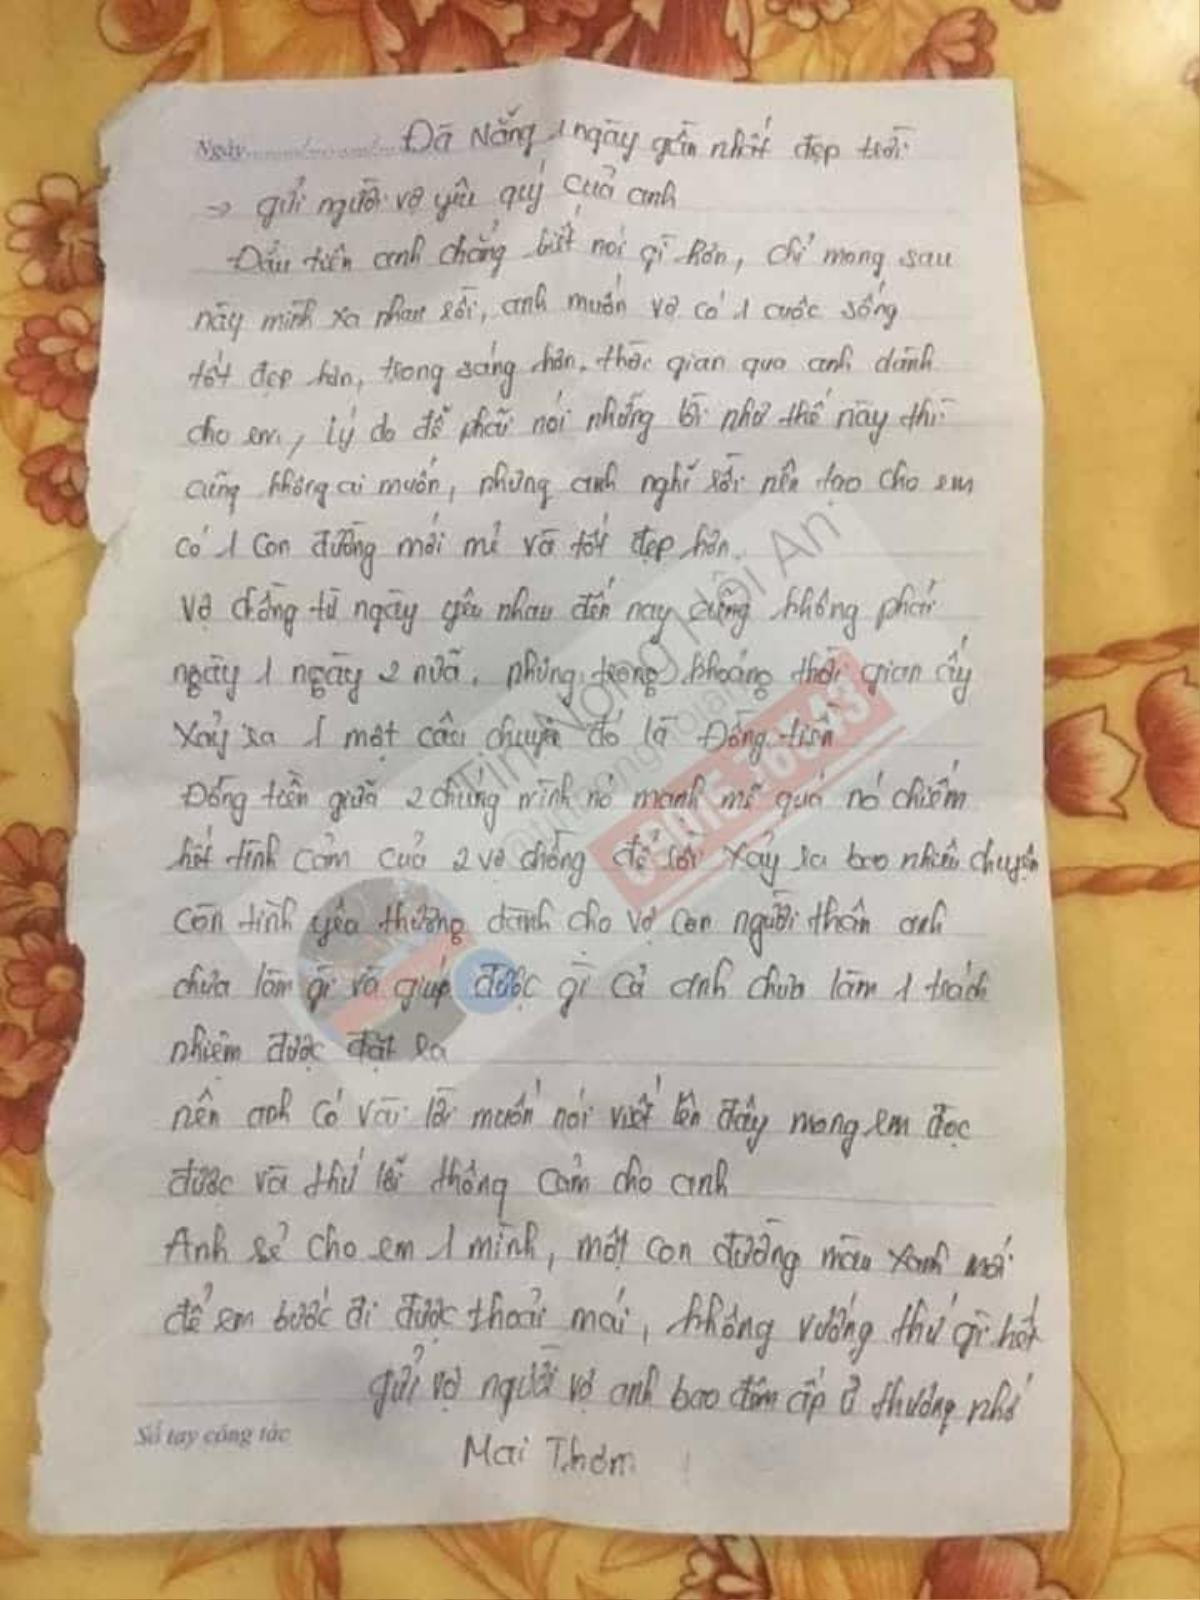 Ngày......./......./....... Đà Nẵng 1 ngày gần nhất đẹp trời
→ gửi người vợ yêu quý của anh
Đầu tiên anh chẳng biết nói gì hơn, chỉ mong sau
này mình xa nhau rồi, anh muốn vợ có 1 cuộc sống
tốt đẹp hơn, trong sáng hơn, thời gian qua anh dành
cho em, lý do để phải nói những lời như thế này thì
cũng không ai muốn, nhưng anh nghĩ rồi nên tạo cho em
có 1 con đường mới mẻ và tốt đẹp hơn.
Vợ chồng từ ngày yêu nhau đến nay cũng không phải
ngày 1 ngày 2 nữa, nhưng trong khoảng thời gian ấy
xảy ra 1 một câu chuyện đó là Đồng tiền
Đồng tiền giữa 2 chúng mình nó mạnh mẽ quá nó chiếm
hết tình cảm của 2 vợ chồng để rồi xảy ra bao nhiêu chuyện
còn tình yêu thương dành cho vợ con người thân anh
chưa làm gì và giúp được gì cả anh chưa làm 1 trách
nhiệm được đặt ra
nên anh có vài lời muốn nói viết lên đây mong em đọc
được và thứ lỗi thông cảm cho anh
Anh sẻ cho em 1 mình, một con đường màu xanh mới
để em bước đi được thoải mái, không vướng thứ gì hết
gửi vợ người vợ anh bao đêm ấp ủ thương nhớ
Sổ tay công tác
Mai Thơm
Tin Nóng Hội An